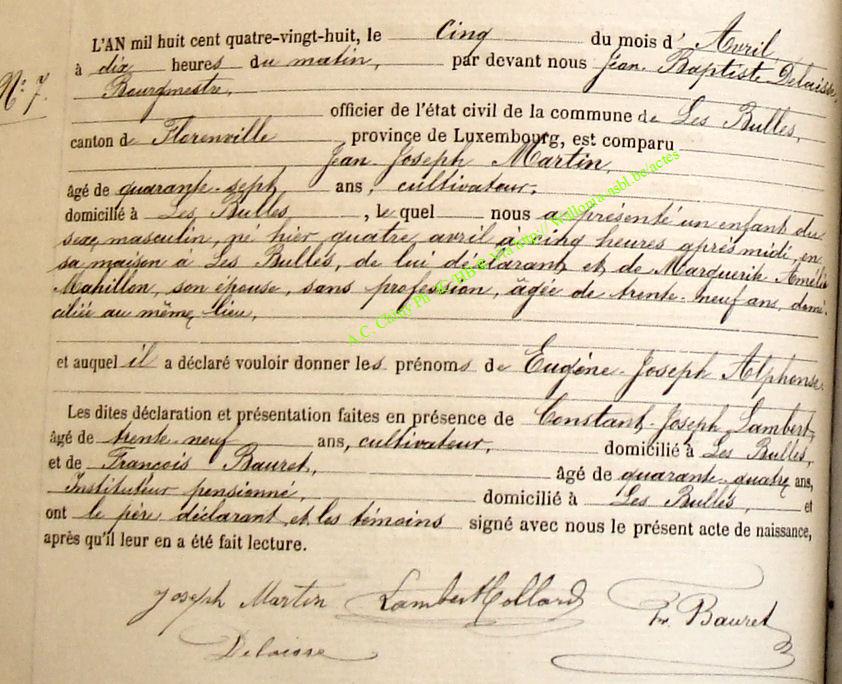 L'AN mil huit cent quatre-vingt-huit, le cinq du mois d' Avril,
à dix heures du matin, par devant nous Jean Baptiste Delaisse,
N° 7.
Bourgmestre,
officier de l'état civil de la commune de Les Bulles,
canton de Florenville province de Luxembourg, est comparu
Jean-Joseph Martin,
âgé de quarante-sept ans, cultivateur,
domicilié à Les Bulles, le quel nous a présenté un enfant du
sexe masculin, né hier quatre avril à cinq heures après midi, en
sa maison à Les Bulles, de lui déclarant et de Marguerite Amélie
Mahillon, son épouse, sans profession, âgée de trente-neuf ans, domi-
ciliée au même lieu,
et auquel il a déclaré vouloir donner les prénoms de Eugène-Joseph Alphonse.
Les dites déclaration et présentation faites en présence de Constant-Joseph Lambert,
âgé de trente-neuf ans, cultivateur, domicilié à Les Bulles,
et de François Bauret, âgé de quarante-quatre ans,
Instituteur pensionné, domicilié à Les Bulles, et
ont le père déclarant et les témoins signé avec nous le présent acte de naissance,
après qu'il leur en a été fait lecture.
Joseph Martin Lambert Collard Fr. Bauret
Delaisse